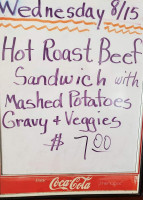 Wednesday 8/15
Hot Roast Beef
Sandwich with
Mashed Potatoes
Gravy + Veggies
$ 7.00
Coca-Cola